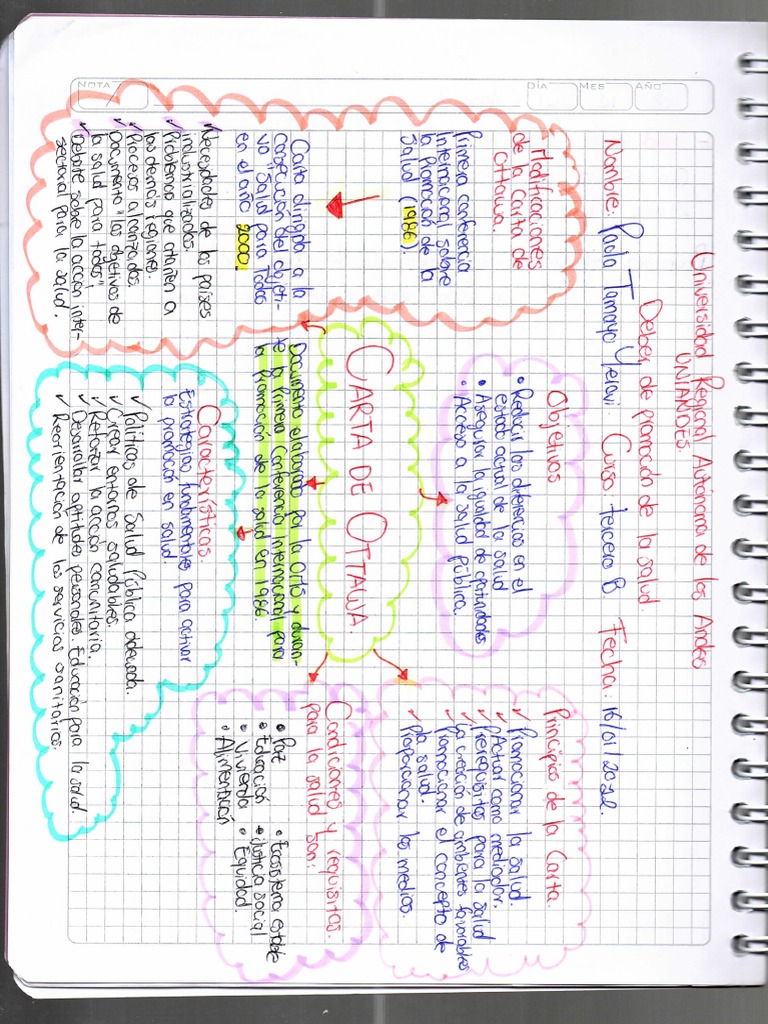 NOTA
DÍA
MES
AÑO
Universidad Regional Autónoma de los Andes
UNIANDES
Deber de promoción de la salud.
Nombre: Paola Tamayo Yeravi. Curso: tercero B Fecha: 16/01/2022.
Modificaciones
de la Carta de
Ottawa.
Primera conferencia
Internacional sobre
la Promoción de la
Salud (1986).
Carta dirigida a la
consecución del objeti-
vo "Salud para Todos
en el año 2000.
✓ Necesidades de los países
industrializados.
✓ Problemas que atañen a
las demas regiones.
✓ Procesos alcanzados.
✓ Documento "los objetivos de
la salud para todos",
✓ Debate sobre la acción inter-
sectorial para la salud.
Objetivos
• Reducir las diferencias en el
estado actual de la salud
• Asegurar la igualdad de oportunidades
• Acceso a la salud pública.
CARTA DE OTTAWA.
Documento elaborado por la OMS y duran-
te la Primera Conferencia Internacional para
la promoción de la salud en 1986
Características.
Estrategias fundamentales para activar
la promoción en salud.
✓ Políticas de Salud Pública adecuada.
✓ Crear entornos saludables.
✓ Reforzar la acción comunitaria.
✓ Desarrollar aptitudes personales. Educación para la salud.
✓ Reorientación de los servicios sanitarios.
Principios de la Carta.
✓ Promocionar la salud.
✓ Actuar como mediador.
✓ Prerequisitos para la salud
✓ La creación de ambientes favorables
✓ Promocionar el concepto de
la salud.
✓ Proporcionar los medios.
Condiciones y requisitos.
para la salud son:
• Paz
• Educación
• Vivienda
• Alimentación
• Ecosistema estable
• Justicia social
• Equidad.